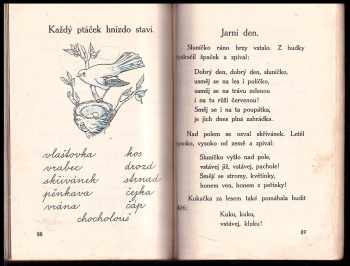 Každý ptáček hnízdo staví.
vlaštovka kos
vrabec drozd
skřivánek strnad
pěnkava čejka
vrána čáp
chocholouš
88
Jarní den.
Sluníčko ráno brzy vstalo. Z budky
špaček a zpíval:
Dobrý den, dobrý den, sluníčko,
usměj se na les i políčko,
směj se na trávu zelenou
i na tu růži červenou!
Směj se i na ta poupátka,
je jich dnes plná zahrádka.
Nad polem se ozval skřivánek. Letěl
vysoko, vysoko od země a zpíval:
Sluníčko vyšlo nad pole,
vstávej již, vstávej, pachole!
Směj se stromy, květinky,
honem ven, honem z peřinky!
Kukačka za lesem také pomáhala budit
Kuku, kuku,
vstávej, kluku!
89